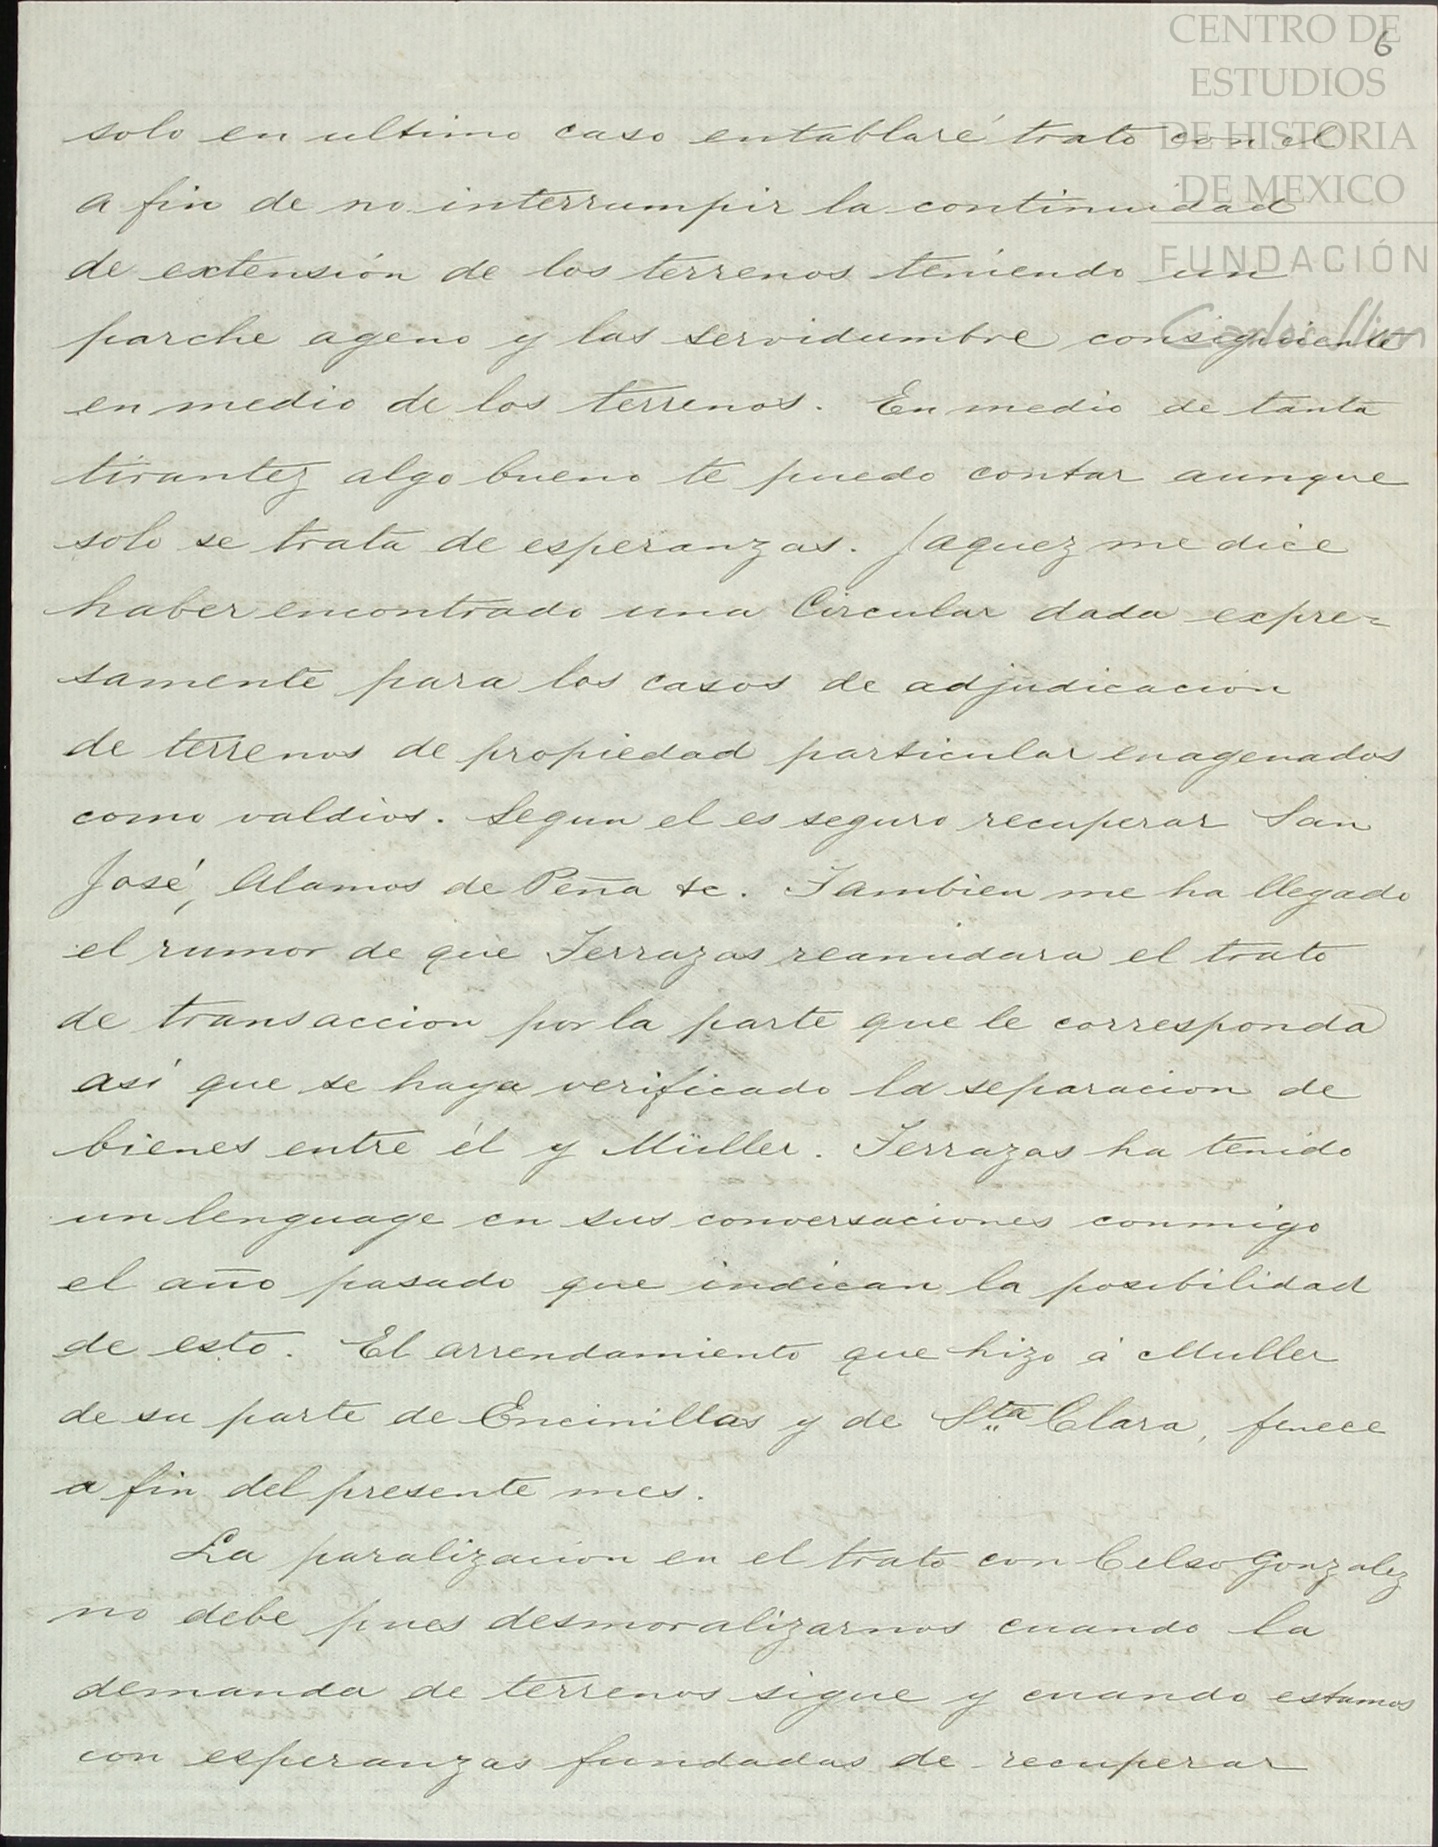 CENTRO DE
ESTUDIOS
DE HISTORIA
DE MEXICO
FUNDACIÓN
Carlos Slim
6
solo en ultimo caso entablaré trato con el
a fin de no interrumpir la continuidad
de extensión de los terrenos teniendo un
parche ageno y las servidumbre consiguiente
en medio de los terrenos. En medio de tanta
tirantez algo bueno te puedo contar aunque
solo se trata de esperanzas. Jaquez me dice
haber encontrado una Circular dada expre=
samente para los casos de adjudicacion
de terrenos de propiedad particular enagenados
como valdios. Segun el es seguro recuperar San
José, Alamos de Peña &c. Tambien me ha llegado
el rumor de que Terrazas reanudara el trato
de transaccion por la parte que le corresponda
asi que se haya verificado la separacion de
bienes entre él y Müller. Terrazas ha tenido
un lenguage en sus conversaciones conmigo
el año pasado que indican la posibilidad
de esto. El arrendamiento que hizo á Muller
de su parte de Encinillas y de Sta Clara, fenece
a fin del presente mes.
La paralizacion en el trato con Celso Gonzalez
no debe pues desmoralizarnos cuando la
demanda de terrenos sigue y cuando estamos
con esperanzas fundadas de recuperar